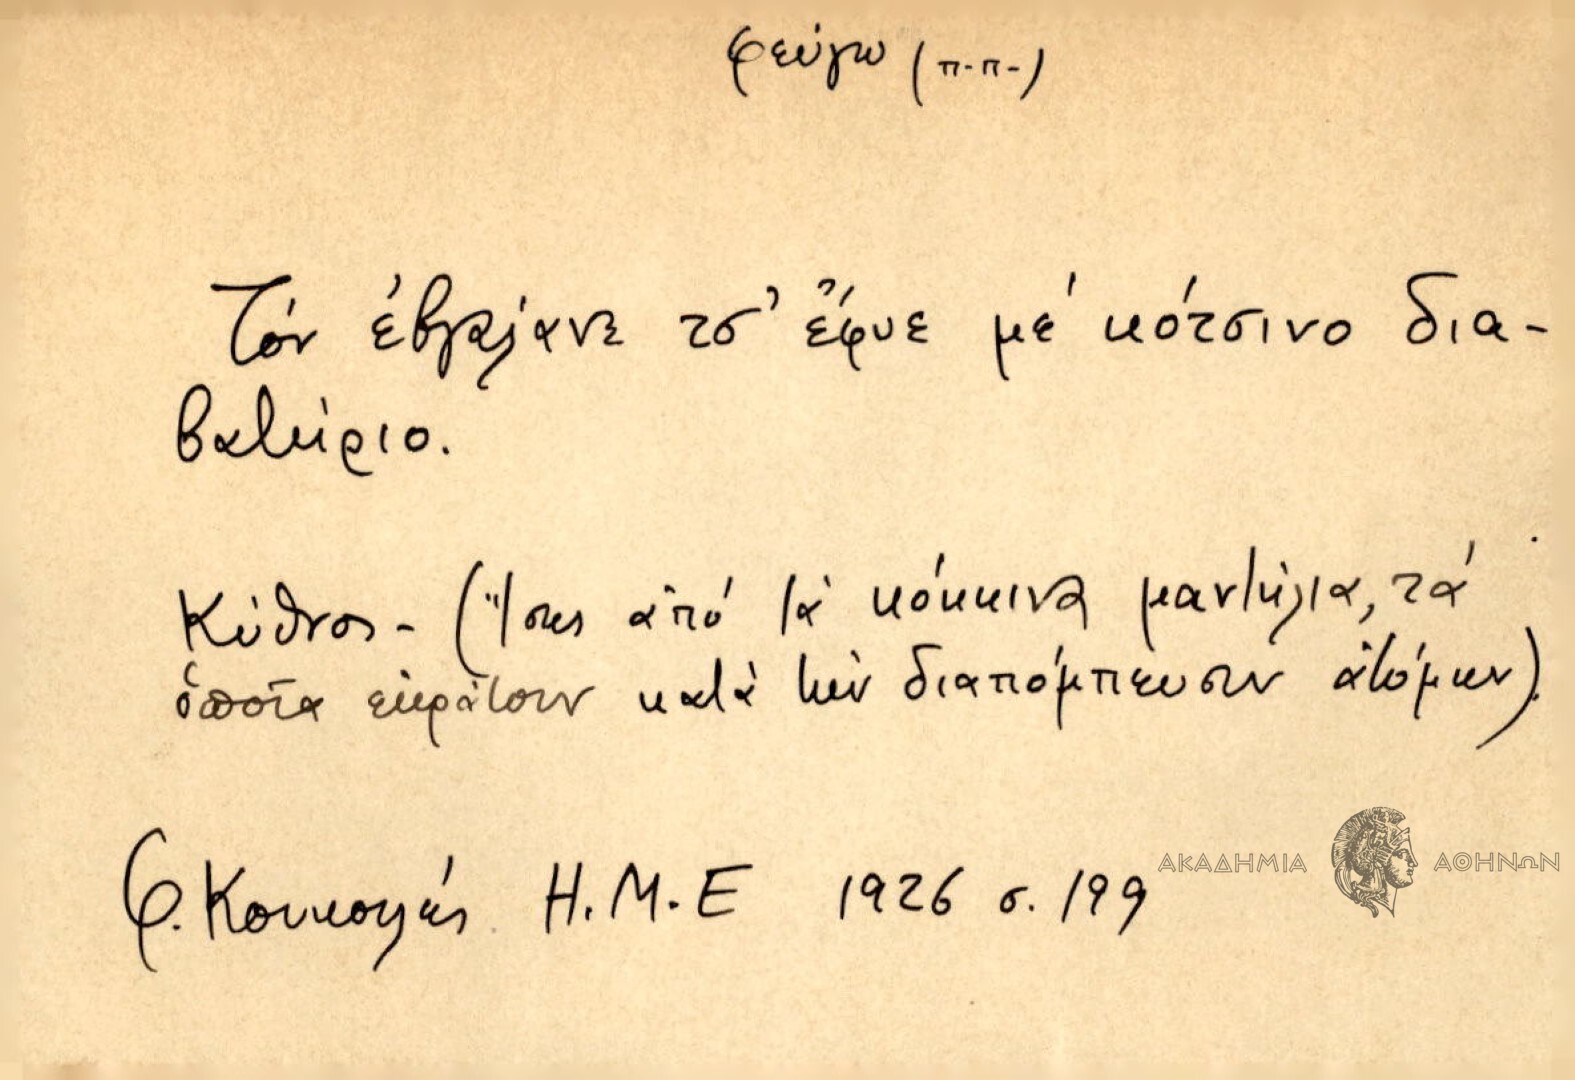 φεύγω (π.π.)
Τόν ἐβγαλανε τσ' ἔφυε μέ κότσινο δια-
βατήριο.
Κύθνος - (Ἴσως ἀπό τά κόκκινα μαντήλια, τά
ὁποῖα ἐκράτουν κατά τήν διαπόμπευσιν ἀτόμων).
Φ. Κουκουλές Η.Μ.Ε 1926 σ. 199
ΑΚΑΔΗΜΙΑ ΑΘΗΝΩΝ